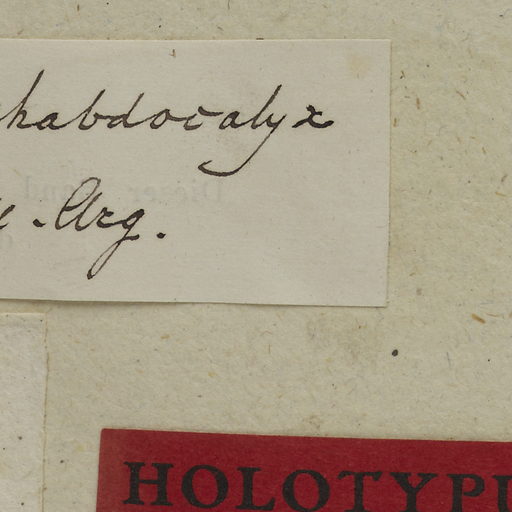 habdocalyx
. Arg.
HOLOTYPU